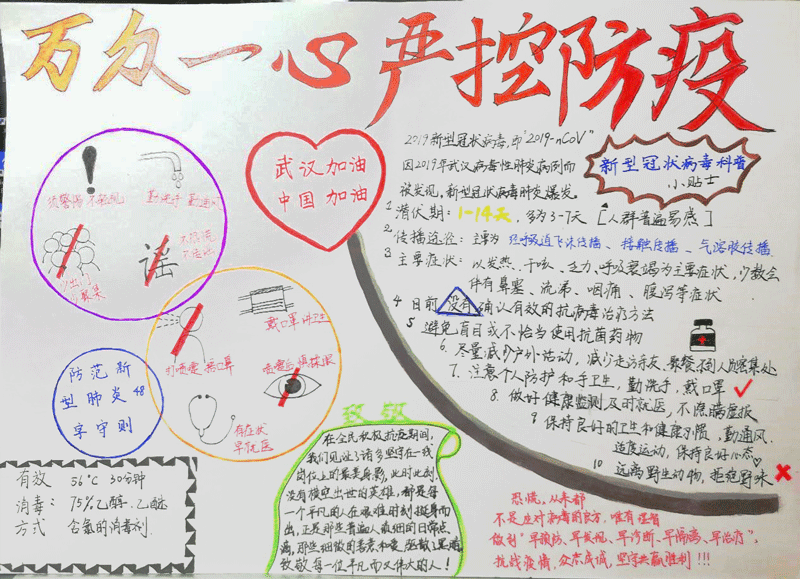 万众一心 严控防疫
武汉加油
中国加油
新型冠状病毒科普
小贴士
2019新型冠状病毒,即"2019-nCoV"
因2019年武汉病毒性肺炎病例而
被发现,新型冠状病毒肺炎爆发。
1 潜伏期:1-14天,多为3-7天[人群普遍易感]
2 传播途径:主要为 经呼吸道飞沫传播、接触传播、气溶胶传播
3 主要症状:以发热、干咳、乏力、呼吸衰竭为主要症状,少数会
伴有鼻塞、流涕、咽痛、腹泻等症状
4 目前没有确认有效的抗病毒治疗方法
5 避免盲目或不恰当使用抗菌药物
6. 尽量减少户外活动,减少走亲访友、聚餐、不到人员密集处
7. 注意个人防护和手卫生,勤洗手,戴口罩
8. 做好健康监测及时就医,不隐瞒虚报
9 保持良好的卫生和健康习惯,勤通风
适度运动,保持良好心态
10 远离野生动物,拒绝野味
勤洗手 勤通风
谣
不信谣
不传谣
少出门
少聚集
戴口罩
打喷嚏 捂口鼻
喷嚏后 慎揉眼
有症状
早就医
防范新
型肺炎48
字守则
有效 56℃ 30分钟
消毒: 75%乙醇、乙醚
方式 含氯的消毒剂
致敬
在全民积极抗疫期间,
我们见证了诸多坚守在一线
岗位上的最美身影,此时此刻
没有横空出世的英雄,都是每
一个平凡的人在艰难时刻挺身而
出,正是那些普通人最细的日常点
滴,那些细微的善意和爱,
致敬每一位平凡而又伟大的人!
恐慌,从来都
不是应对病毒的良方,唯有理智
做到"早预防、早发现、早诊断、早隔离、早治疗",
抗战疫情,众志成城,坚守共赢胜利!!!